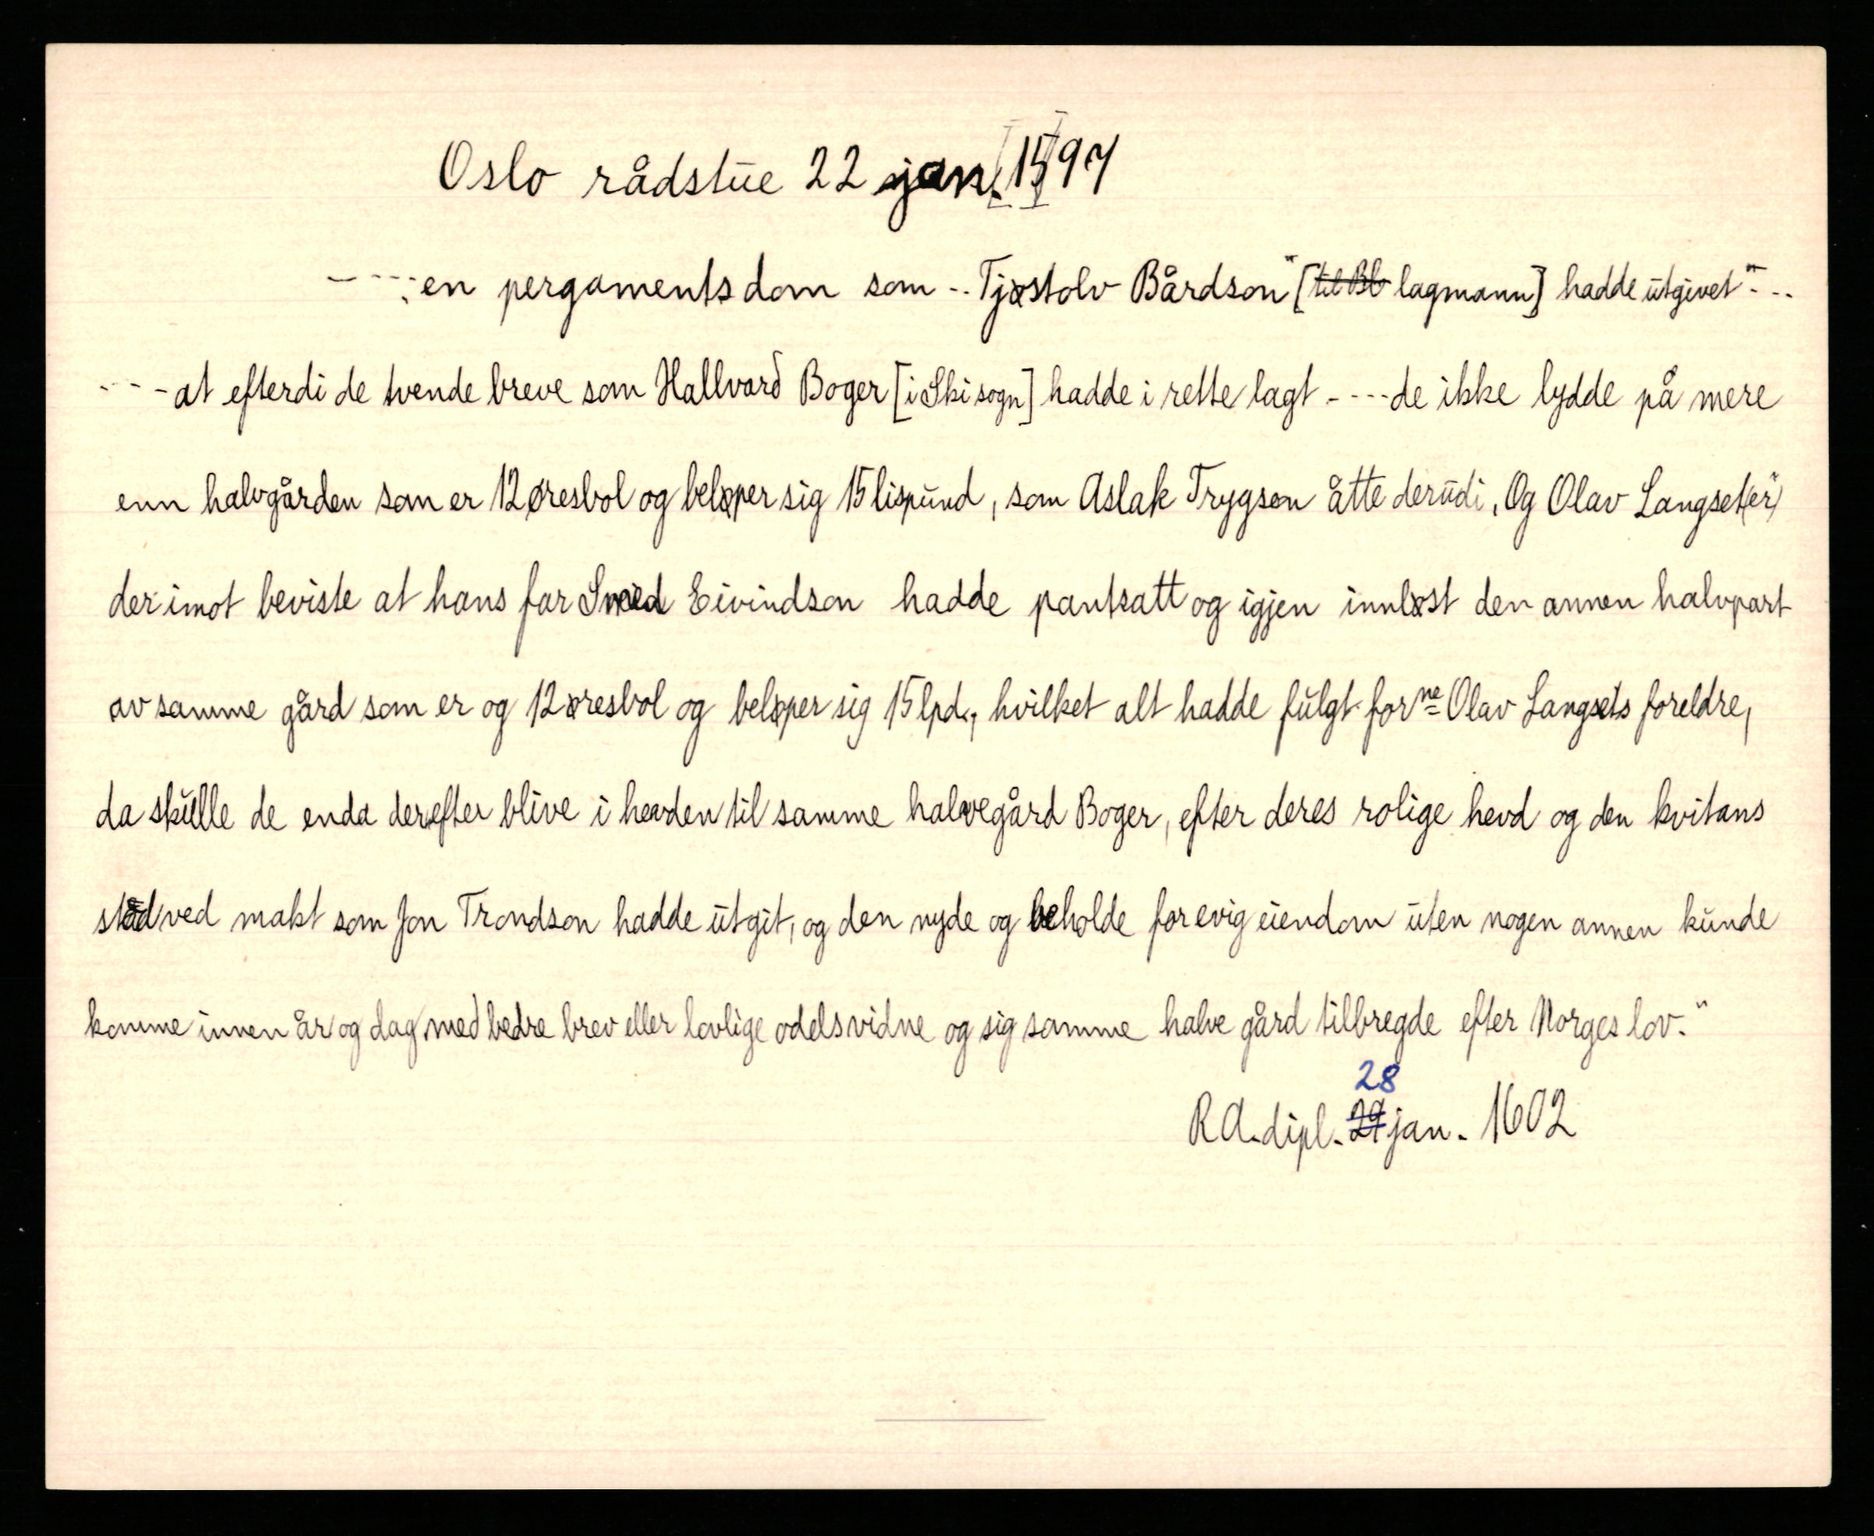 Oslo rådstue 22 jan. 1597
- - - -; en pergamentsdom som -- Tjøstolv Bårdson" [til Bb lagmann] hadde utgivet" - - -
- - - - at efterdi de tvende breve som Hallvard Boger [i Ski sogn] hadde i rette lagt - - - - de ikke lydde på mere
enn halvgården som er 12 øresbol og beløper sig 15 lispund, som Aslak Trygson åtte derudi, Og Olav Langset(er)
derimot beviste at hans far Smed Eivindson hadde pantsatt og igjen innløst den annen halvpart
av samme gård som er og 12 øresbol og beløper sig 15 lpd., hvilket alt hadde fulgt for^ne Olav Langsets foreldre,
da skulle de enda derefter blive i hevden til samme halvegård Boger, efter deres rolige hevd og den kvitans
stod ved makt som Jon Trondson hadde utgit, og den nyde og beholde for evig eiendom uten nogen annen kunde
komme innen år og dag med bedre brev eller lovlige odelsvidne og sig samme halve gård tilbregde efter Norges lov."
28
RA. dipl. 29 jan. 1602